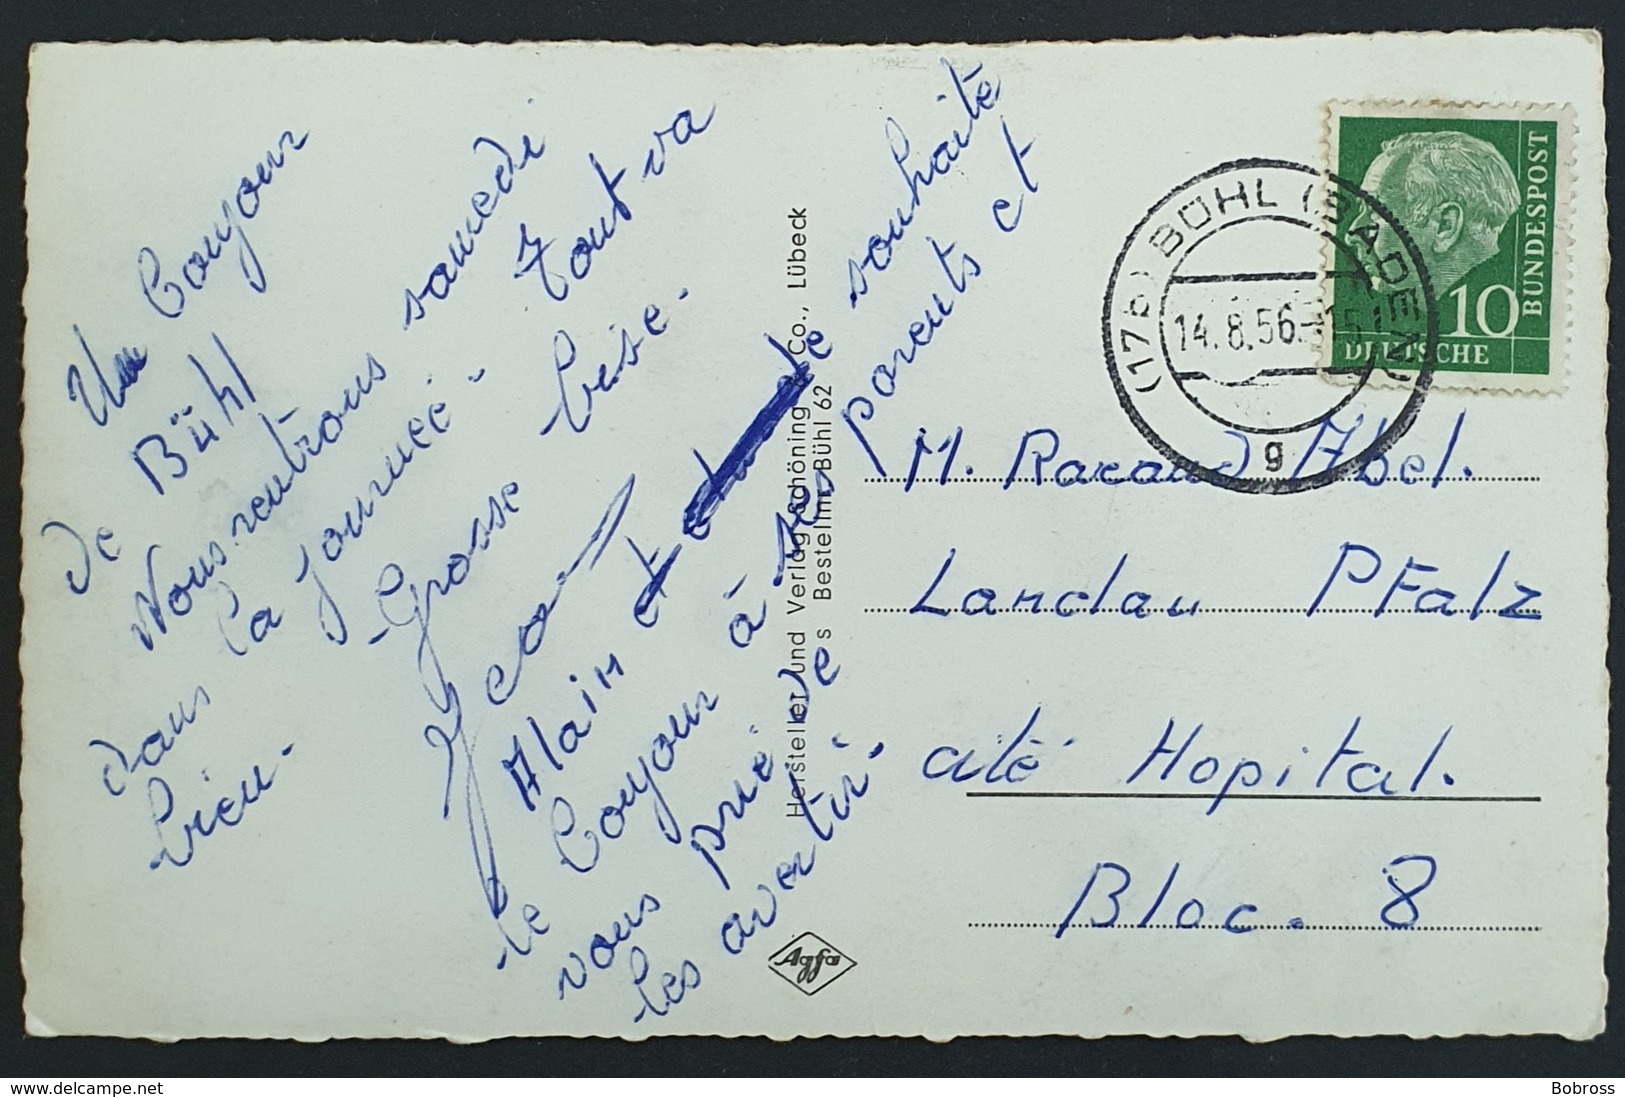 Un Bonjour
de Bühl
Nous rentrons samedi
dans la journée. Tout va
bien. Grosse bise.
Jean
Alain et souhaite
le bonjour à ses parents et
vous prie de
les avertir.
Hersteller und Verlag Schöning & Co., Lübeck
Bestellnr. Bühl 62
Agfa
(17b) BÜHL (BADEN)
14.8.56.-15
g
DEUTSCHE
BUNDESPOST
10
M. Racaud Abel.
Landau PFalz
cité Hopital.
Bloc. 8
www.delcampe.net
Bobross